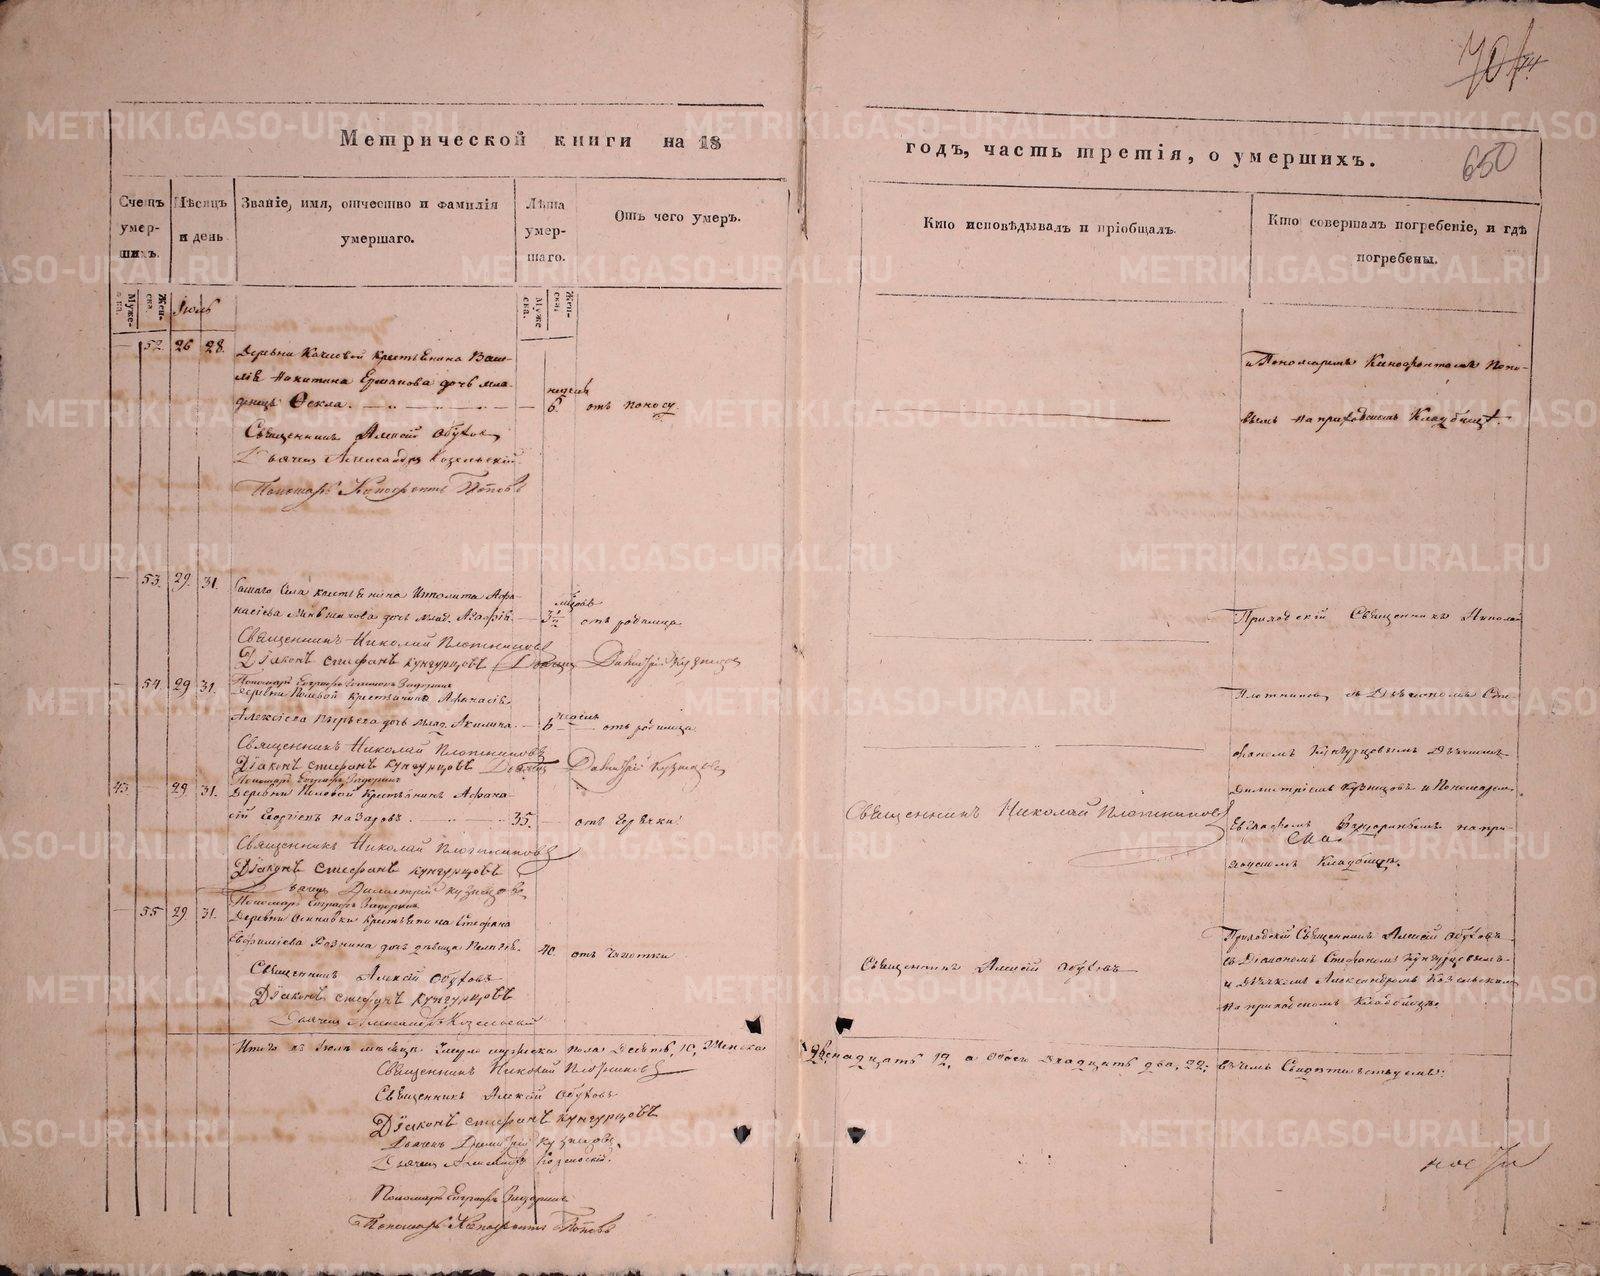 650
Метрической книги на 18
годъ, часть третія, о умершихъ.
Счетъ умер-шихъ.
Мѣсяцъ и день
Званіе, имя, отчество и фамилія умершаго.
Лѣта умер-шаго.
Отъ чего умеръ.
Кто исповѣдывалъ и пріобщалъ.
Кто совершалъ погребеніе, и гдѣ погребены.
Муже-ска.
Жен-ска.
Іюль
Муже ска.
Жен-ска.
52. 26 28.
Деревни крестьянина Васи-
лія Никитина Ермакова дочь мла-
денецъ Ѳекла.
недѣль
6. отъ поносу.
и Пономаремъ Ксенофонтомъ Попо-
вымъ на приходскомъ кладбищѣ.
Священникъ Алексій Обуховъ
Дьячекъ Александръ Козельскій
Пономарь Ксенофонтъ Поповъ
53. 29. 31.
Самаго Села крестьянина Ипполита Аѳа-
насіева дочь млад. Агафія.
3 отъ родимца
Приходскій Священникъ Николай
Священникъ Николай Плотниковъ
Діаконъ Стефанъ Кунгурцовъ Дьячекъ Димитрій Кузнецовъ
54. 29 31.
Пономарь Евграфъ
Деревни крестьянина Аѳанасія
Алексіева дочь млад. Акилина.
6 недѣль отъ родимца
Плотниковъ съ Діакономъ Сте-
Священникъ Николай Плотниковъ
Діаконъ Стефанъ Кунгурцовъ Дьячекъ Димитрій Кузнецовъ
фаномъ Кунгурцовымъ Дьячкомъ
43. 29 31.
Пономарь Евграфъ
Деревни крестьянинъ Аѳана-
сій Георгіевъ Назаровъ.
35. отъ горячки
Священникъ Николай Плотниковъ
Димитріемъ Кузнецовымъ и Пономаремъ
Евграфомъ на при-
кладбищѣ.
Священникъ Николай Плотниковъ
Діаконъ Стефанъ Кунгурцовъ
Дьячекъ Димитрій Кузнецовъ
55 29 31.
Пономарь Евграфъ
Деревни Осиновки крестьянина Стефана
Евфиміева дочь дѣвица Пелагея.
40. отъ чахотки
Священникъ Алексій Обуховъ
Приходскій Священникъ Алексій Обуховъ
съ Діакономъ Стефаномъ Кунгурцовымъ
и Дьячкомъ Александромъ Козельскимъ
на приходскомъ кладбищѣ.
Священникъ Алексій Обуховъ
Діаконъ Стефанъ Кунгурцовъ
Дьячекъ Александръ Козельскій
Итого въ Іюлѣ мѣсяцѣ умерло мужеска пола десять, 10, женска двенадцать 12, а обоего двадцать два, 22; въ чемъ свидѣтельствуемъ:
Священникъ Николай Плотниковъ
Священникъ Алексій Обуховъ
Діаконъ Стефанъ Кунгурцовъ
Дьячекъ Димитрій Кузнецовъ
Дьячекъ Александръ Козельскій.
Пономарь Евграфъ
Пономарь Ксенофонтъ Поповъ
METRIKI.GASO-URAL.RU